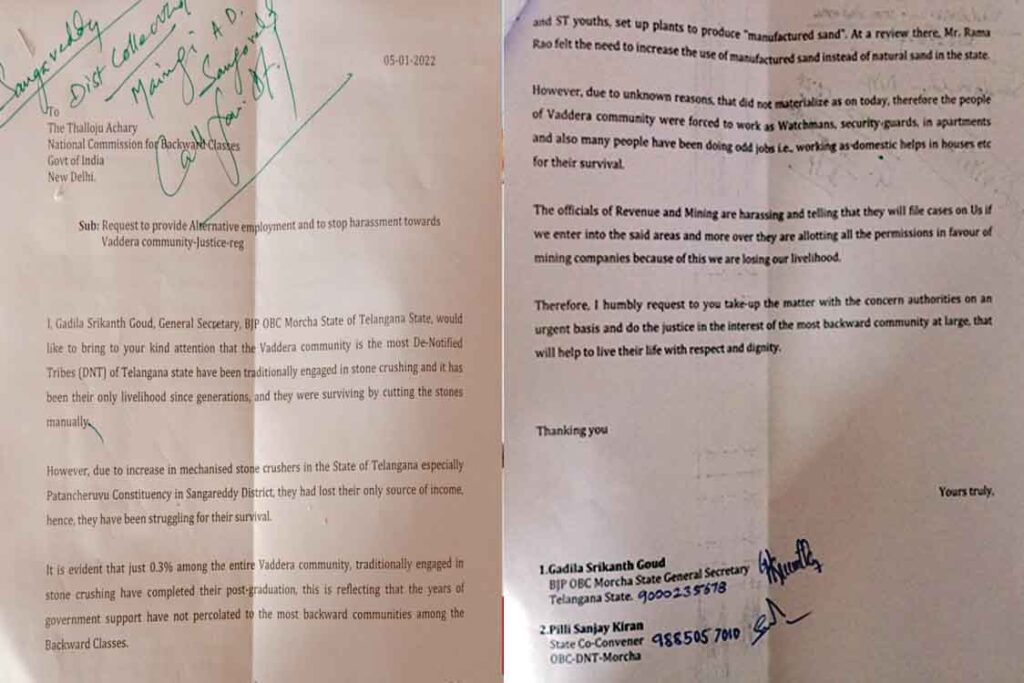 Sangareddy
Dist Collector
Maingi A.D.
Sangareddy
Call for
05-01-2022
To
The Thalloju Achary
National Commission for Backward Classes
Govt of India
New Delhi.
Sub: Request to provide Alternative employment and to stop harassment towards
Vaddera community-Justice-reg
I, Gadila Srikanth Goud, General Secretary, BJP OBC Morcha State of Telangana State, would
like to bring to your kind attention that the Vaddera community is the most De-Notified
Tribes (DNT) of Telangana state have been traditionally engaged in stone crushing and it has
been their only livelihood since generations, and they were surviving by cutting the stones
manually.
However, due to increase in mechanised stone crushers in the State of Telangana especially
Patancheruvu Constituency in Sangareddy District, they had lost their only source of income,
hence, they have been struggling for their survival.
It is evident that just 0.3% among the entire Vaddera community, traditionally engaged in
stone crushing have completed their post-graduation, this is reflecting that the years of
government support have not percolated to the most backward communities among the
Backward Classes.
and ST youths, set up plants to produce "manufactured sand". At a review there, Mr. Rama
Rao felt the need to increase the use of manufactured sand instead of natural sand in the state.
However, due to unknown reasons, that did not materialize as on today, therefore the people
of Vaddera community were forced to work as Watchmans, security-guards, in apartments
and also many people have been doing odd jobs i.e., working as-domestic helps in houses etc
for their survival.
The officials of Revenue and Mining are harassing and telling that they will file cases on Us if
we enter into the said areas and more over they are allotting all the permissions in favour of
mining companies because of this we are losing our livelihood.
Therefore, I humbly request to you take-up the matter with the concern authorities on an
urgent basis and do the justice in the interest of the most backward community at large, that
will help to live their life with respect and dignity.
Thanking you
Yours truly,
1.Gadila Srikanth Goud
BJP OBC Morcha State General Secretary
Telangana State. 9000235678
2.Pilli Sanjay Kiran
State Co-Convener 9885057010
OBC-DNT-Morcha